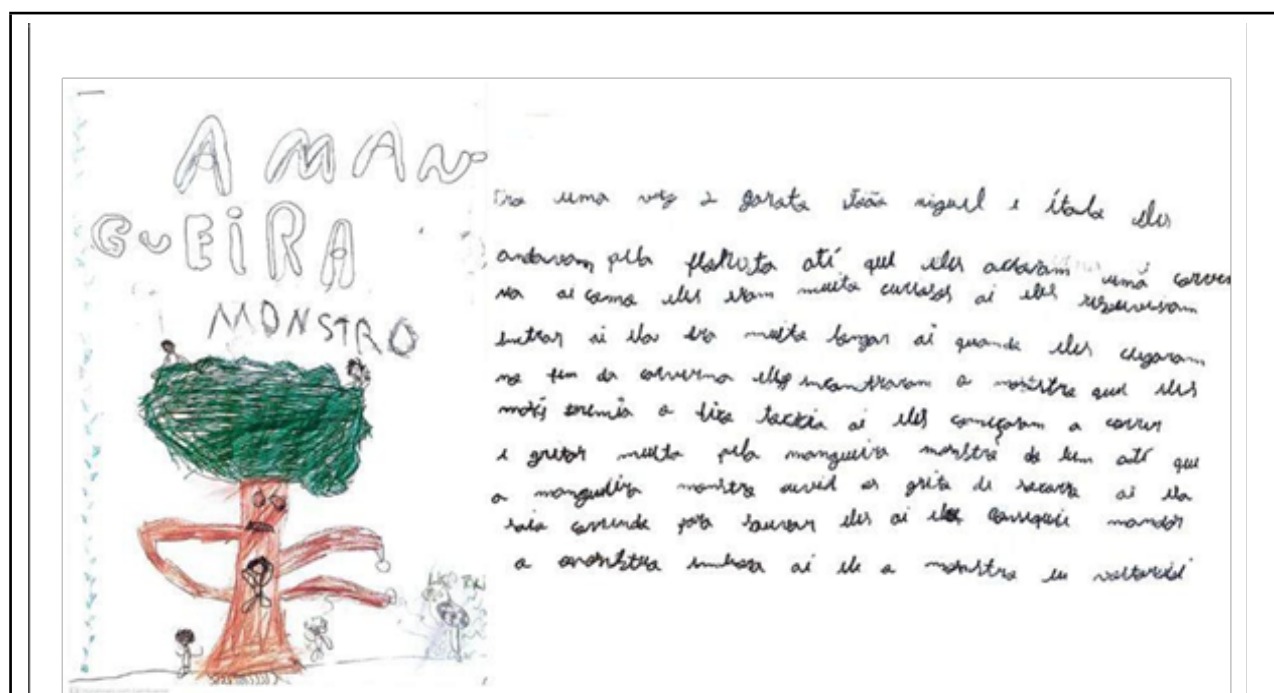 A MAN-
GUEIRA
MONSTRO
Era uma vez 2 garoto João miguel e ítalo eles
andavam pela floresta até que eles acharam uma caver
na ai como eles eram muito curiosos ai eles resouveram
entrar ai ela era muito longar ai quando eles chegaram
no fim da caverna eles encontraram o monstro que eles
mais temia o ai eles começaram a correr
e gritar muito pela mangueira monstro do bem até que
a mangueira monstro ouviu os grito de socorro ai ela
saiu correndo para sauvar eles ai ela conseguiu mandar
o monstro embora ai ele o monstro eu voltarei